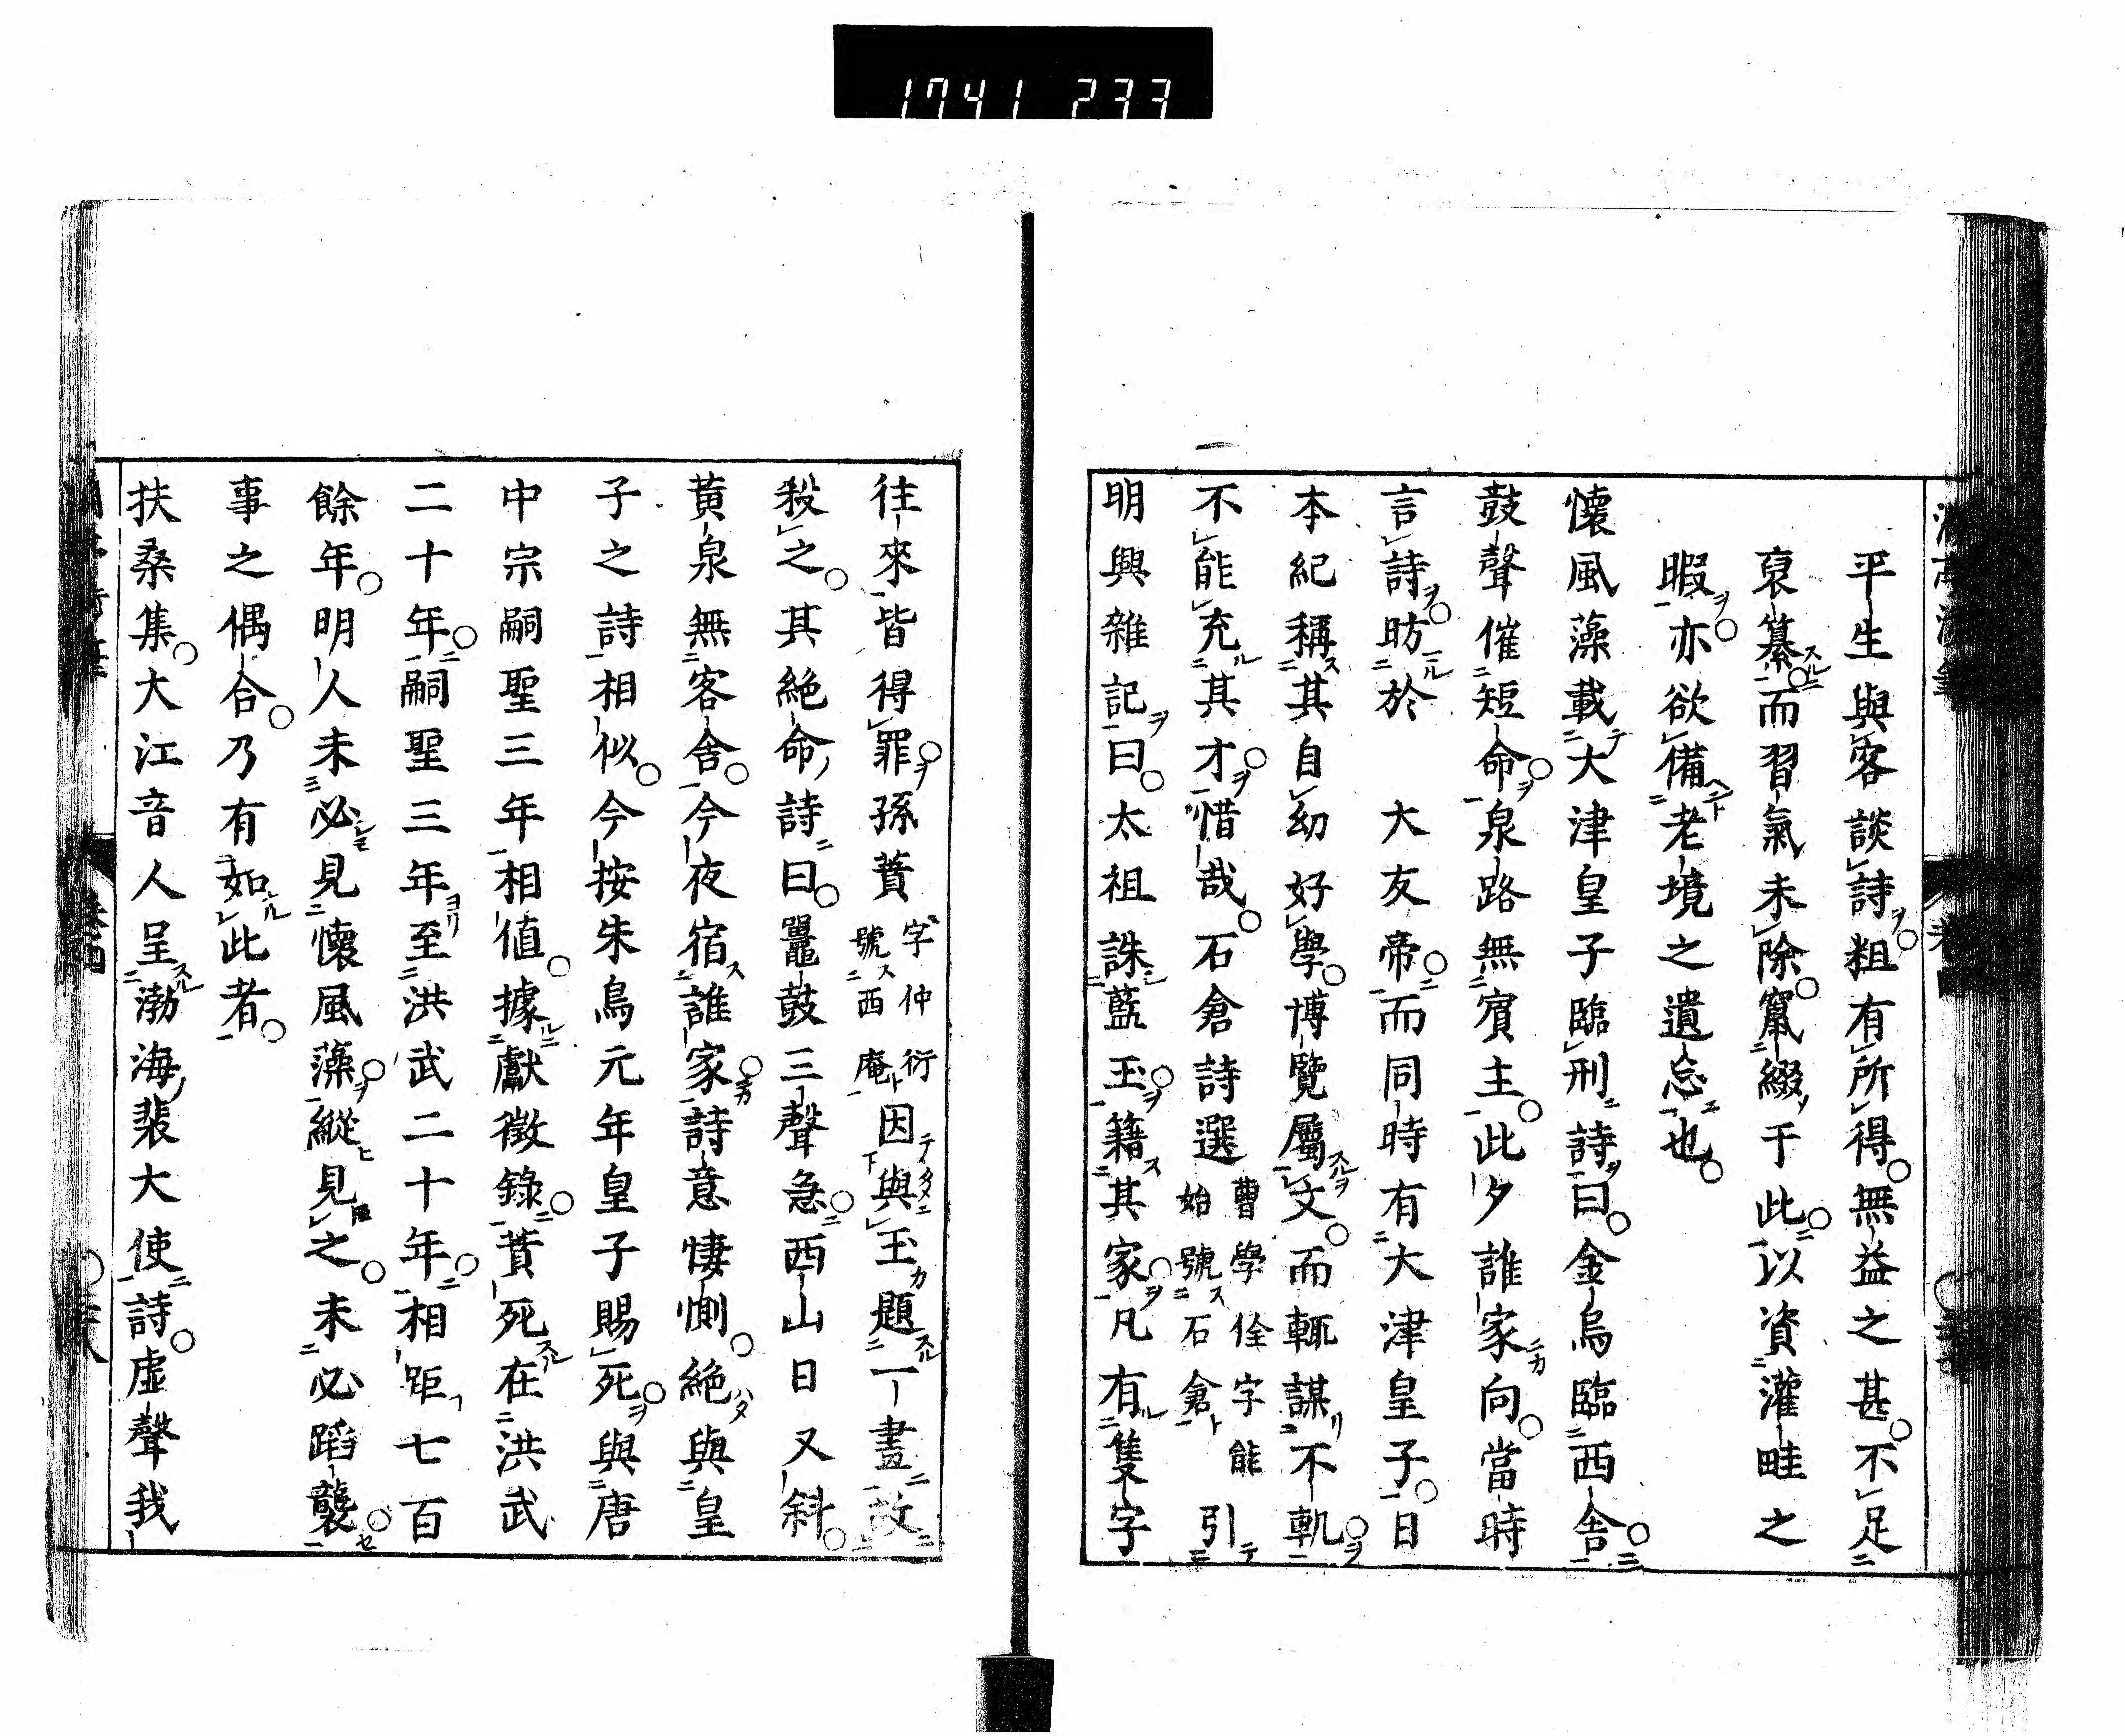 1741 233
平生與客談詩粗有所得無益之甚不足
裒纂而習氣未除竄綴于此以資灌畦之
暇亦欲備老境之遺忘也
懷風藻載大津皇子臨刑詩曰金烏臨西舎
鼓聲催短命泉路無賓主此夕誰家向當時
言詩昉於　大友帝而同時有大津皇子日
本紀稱其自幼好學博覽屬文而輒謀不軌
不能充其才惜哉石倉詩選曹學佺字能始號石倉引
明興雜記曰太祖誅藍玉籍其家凡有隻字
往來皆得罪孫蕡字仲衍號西庵因與玉題一畫故
殺之其絶命詩曰鼉鼓三聲急西山日又斜
黃泉無客舎今夜宿誰家詩意悽惻絶與皇
子之詩相似今按朱鳥元年皇子賜死與唐
中宗嗣聖三年相値據獻徴錄蕡死在洪武
二十年嗣聖三年至洪武二十年相距七百
餘年明人未必見懷風藻縱見之未必蹈襲
事之偶合乃有如此者
扶桑集大江音人呈渤海裴大使詩虚聲我